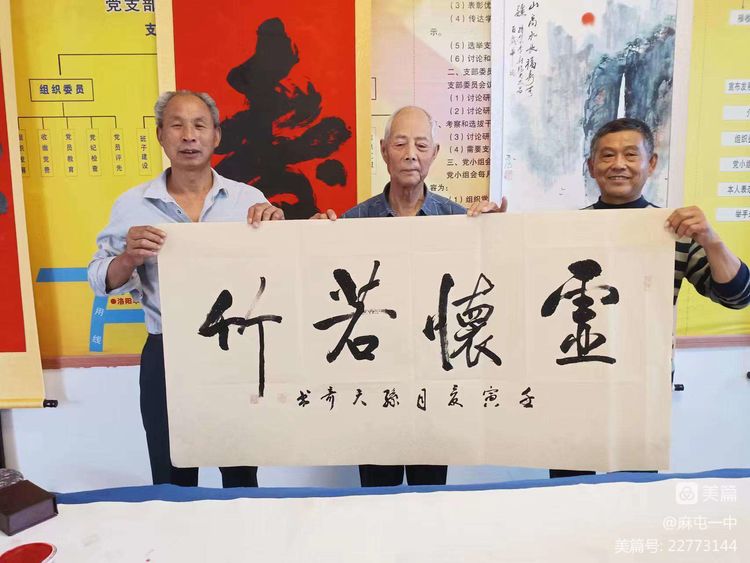 党支部
支
组织委员
收缴党费
党员教育
党纪检查
党员评先
班子建设
洛阳
用
线
寿
(3) 表彰优
(4) 传达学
示。
(5) 选举支
(6) 讨论和
二、支部委员
支部委员会议
(1) 讨论研
(2) 讨论研
考察和选拔干
(3) 讨论研
(4) 需要支
三、党小组会
党小组会每月
容为：
(1) 组织党
山高水长福寿
宣布发展
组织
党小组
本人表示
举手
靈懷若竹
壬寅夏月孫天奇书
美篇
@麻屯一中
美篇号: 22773144